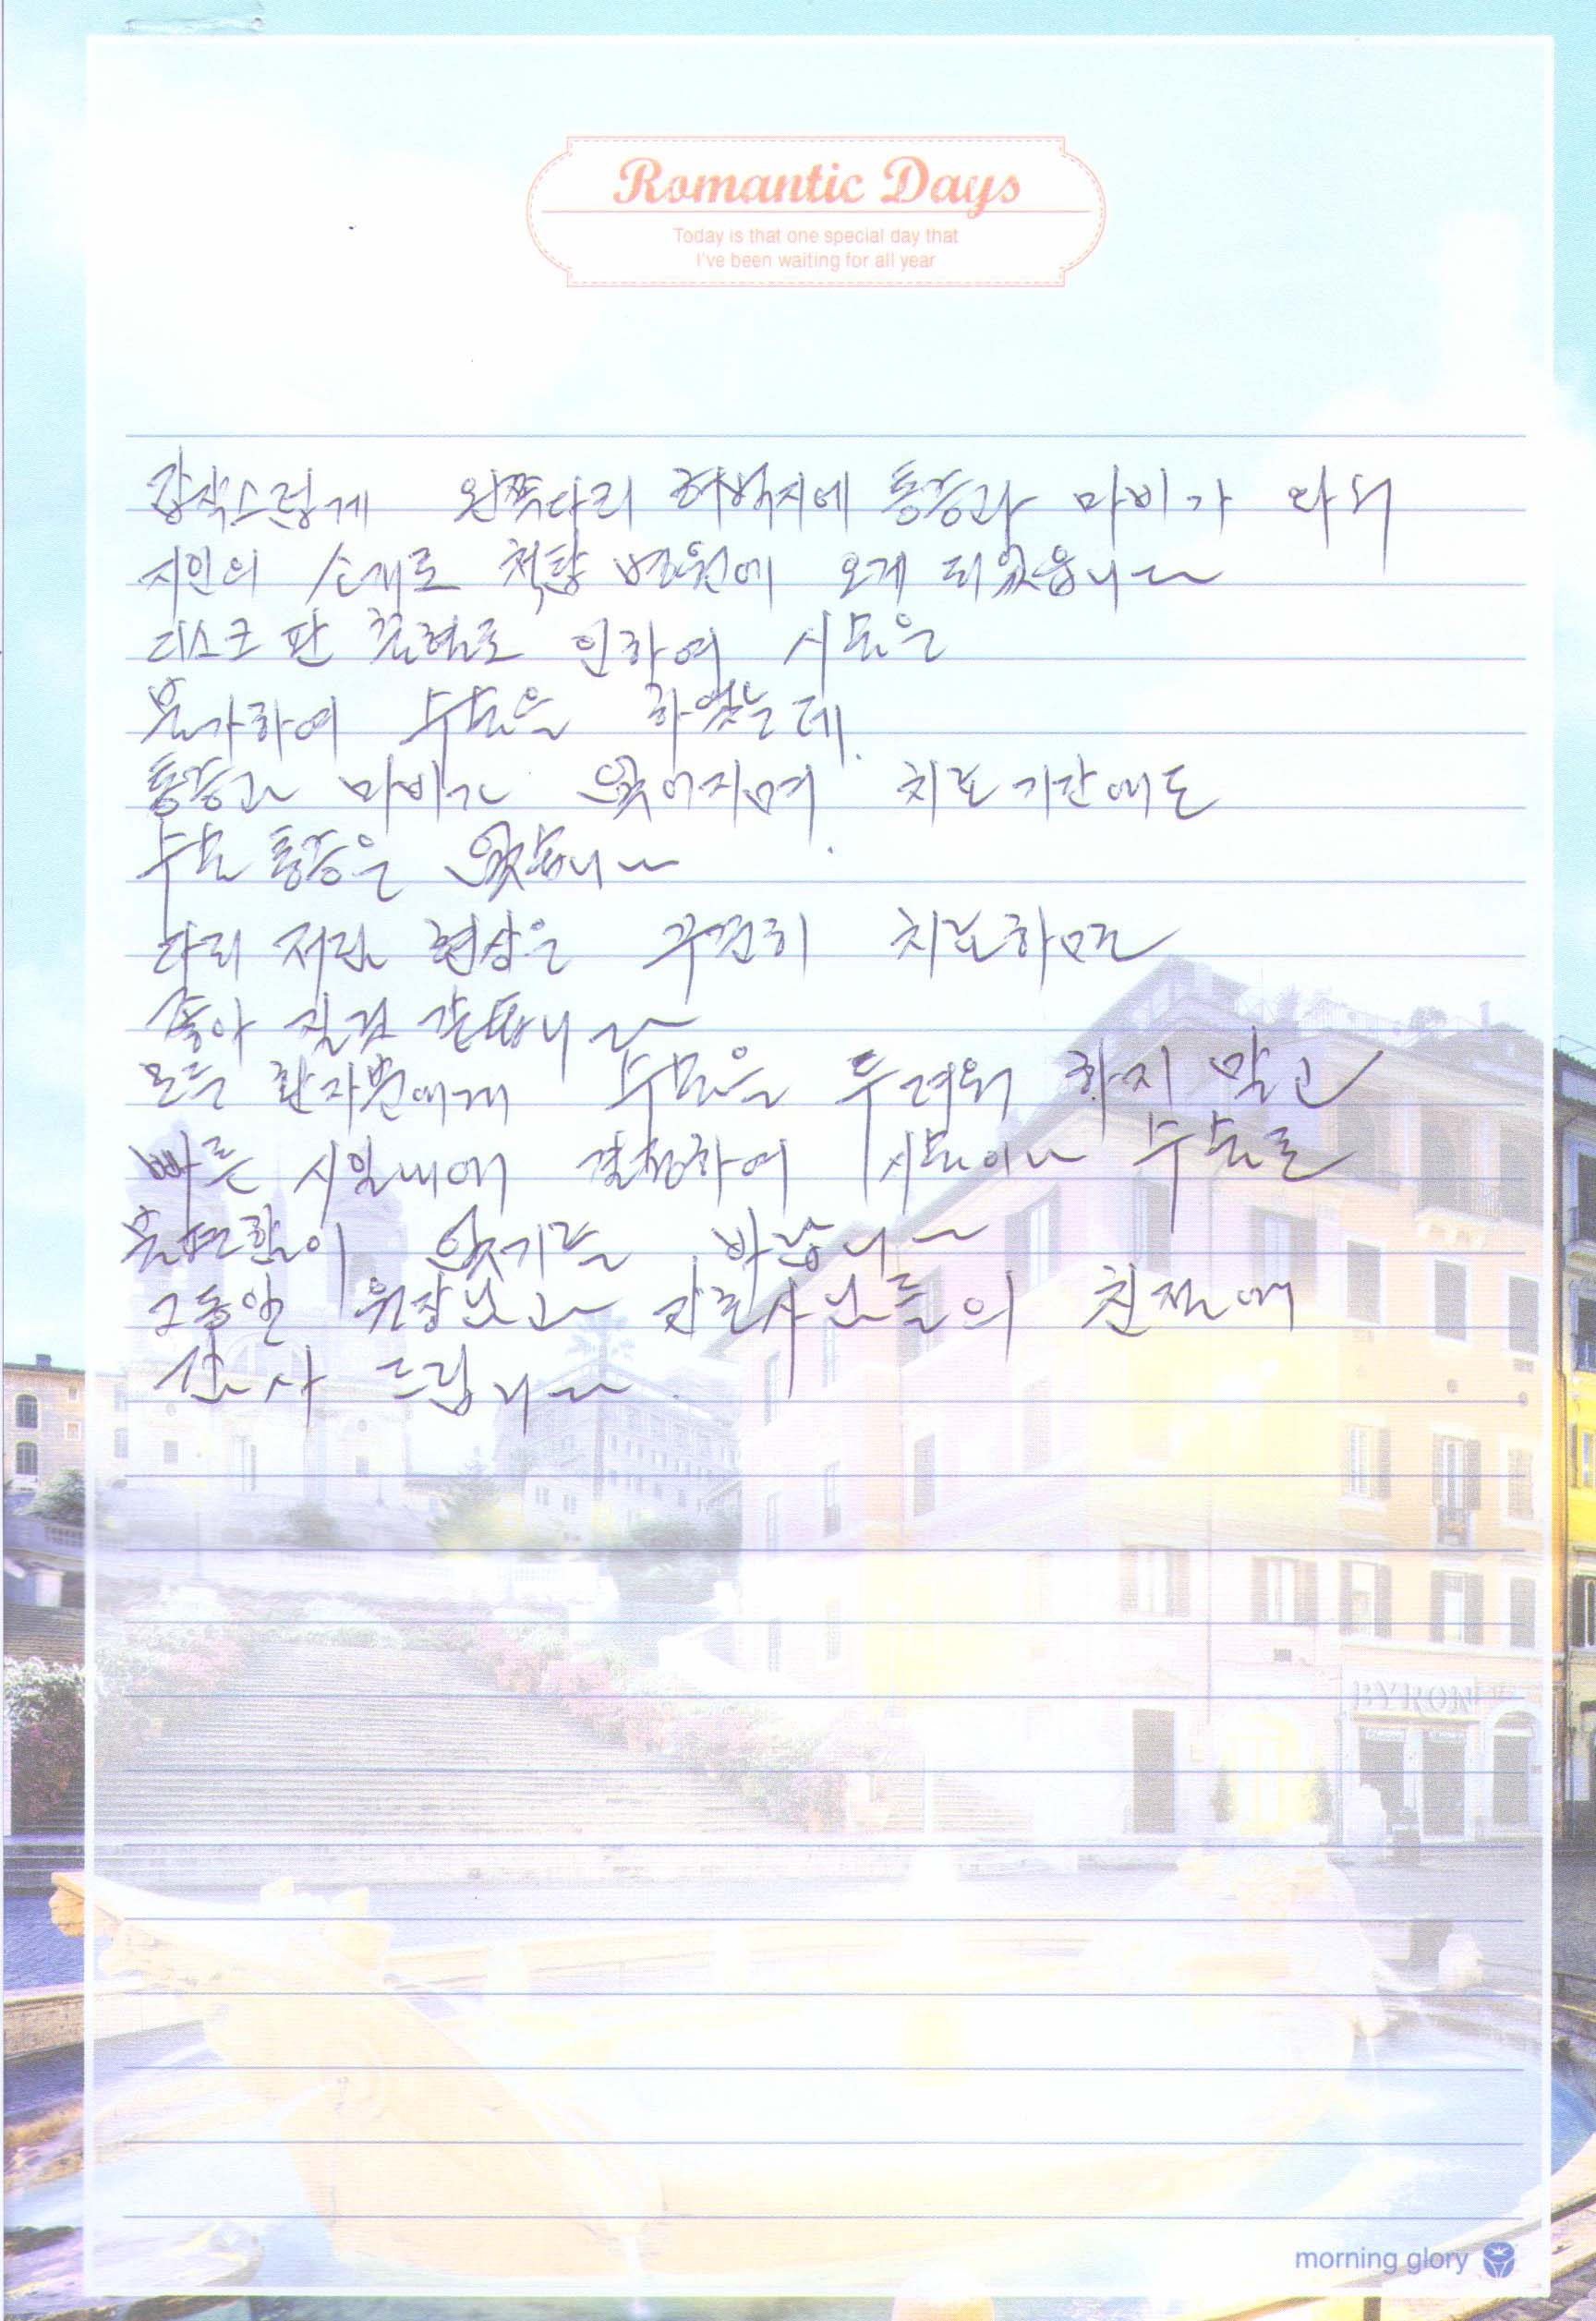 Romantic Days
Today is that one special day that
I've been waiting for all year
갑작스럽게 왼쪽다리 허벅지에 통증과 마비가 와서
지인의 소개로 척탑 병원에 오게 되었읍니다
디스크 판 출혈로 인하여 시술은
불가하여 수술을 하였는데.
통증과 마비가 없어지며 치료 기간에도
수술 통증은 없습니다.
다리 저림 현상은 꾸준히 치료하면
좋아 질것 같습니다
모든 환자분에게 수술을 두려워 하지 말고
빠른 시일내에 결정하여 시술이나 수술로
불편함이 없기를 바랍니다
그동안 원장님과 간호사님들의 친절에
감사 드립니다.
morning glory